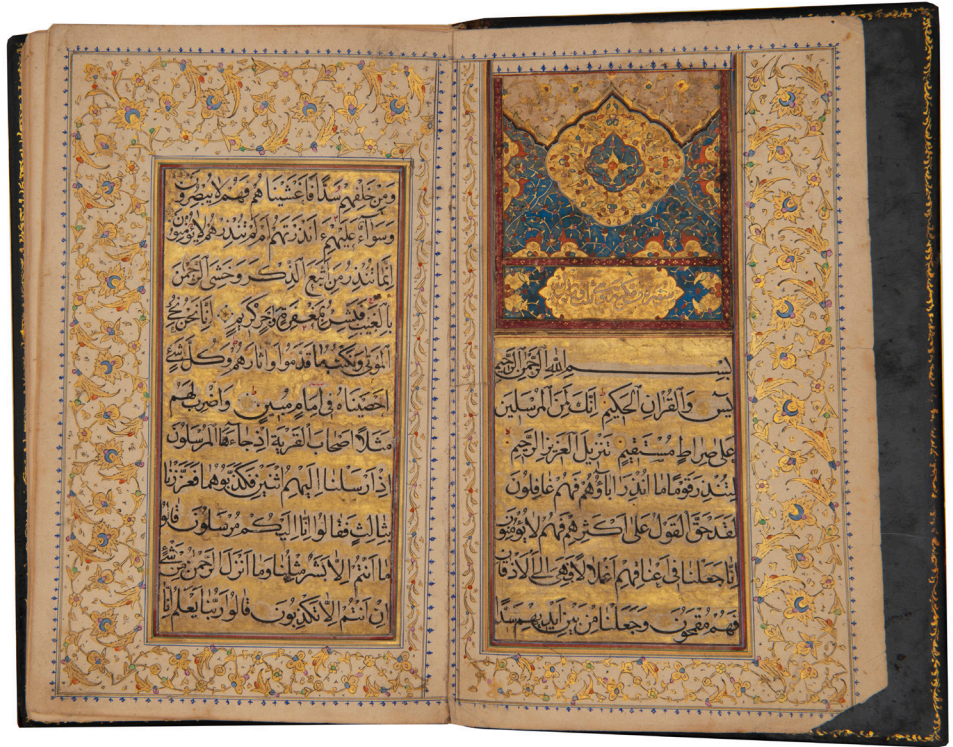 بسم الله الرحمن الرحيم
يس والقران الحكيم انك لمن المرسلين
على صراط مستقيم تنزيل العزيز الرحيم
لتنذر قوما ما انذر اباؤهم فهم غافلون
لقد حق القول على اكثرهم فهم لا يؤمنون
انا جعلنا في اعناقهم اغلالا فهي الى الاذقان
فهم مقمحون وجعلنا من بين ايديهم سدا
ومن خلفهم سدا فاغشيناهم فهم لا يبصرون
وسواء عليهم ءانذرتهم ام لم تنذرهم لا يؤمنون
انما تنذر من اتبع الذكر وخشي الرحمن
بالغيب فبشره بمغفرة واجر كريم انا نحن نحي
الموتى ونكتب ما قدموا واثارهم وكل شيء
احصيناه في امام مبين واضرب لهم
مثلا اصحاب القرية اذ جاءها المرسلون
اذ ارسلنا اليهم اثنين فكذبوهما فعززنا
بثالث فقالوا انا اليكم مرسلون قالوا
ما انتم الا بشر مثلنا وما انزل الرحمن من شيء
ان انتم الا تكذبون قالوا ربنا يعلم انا